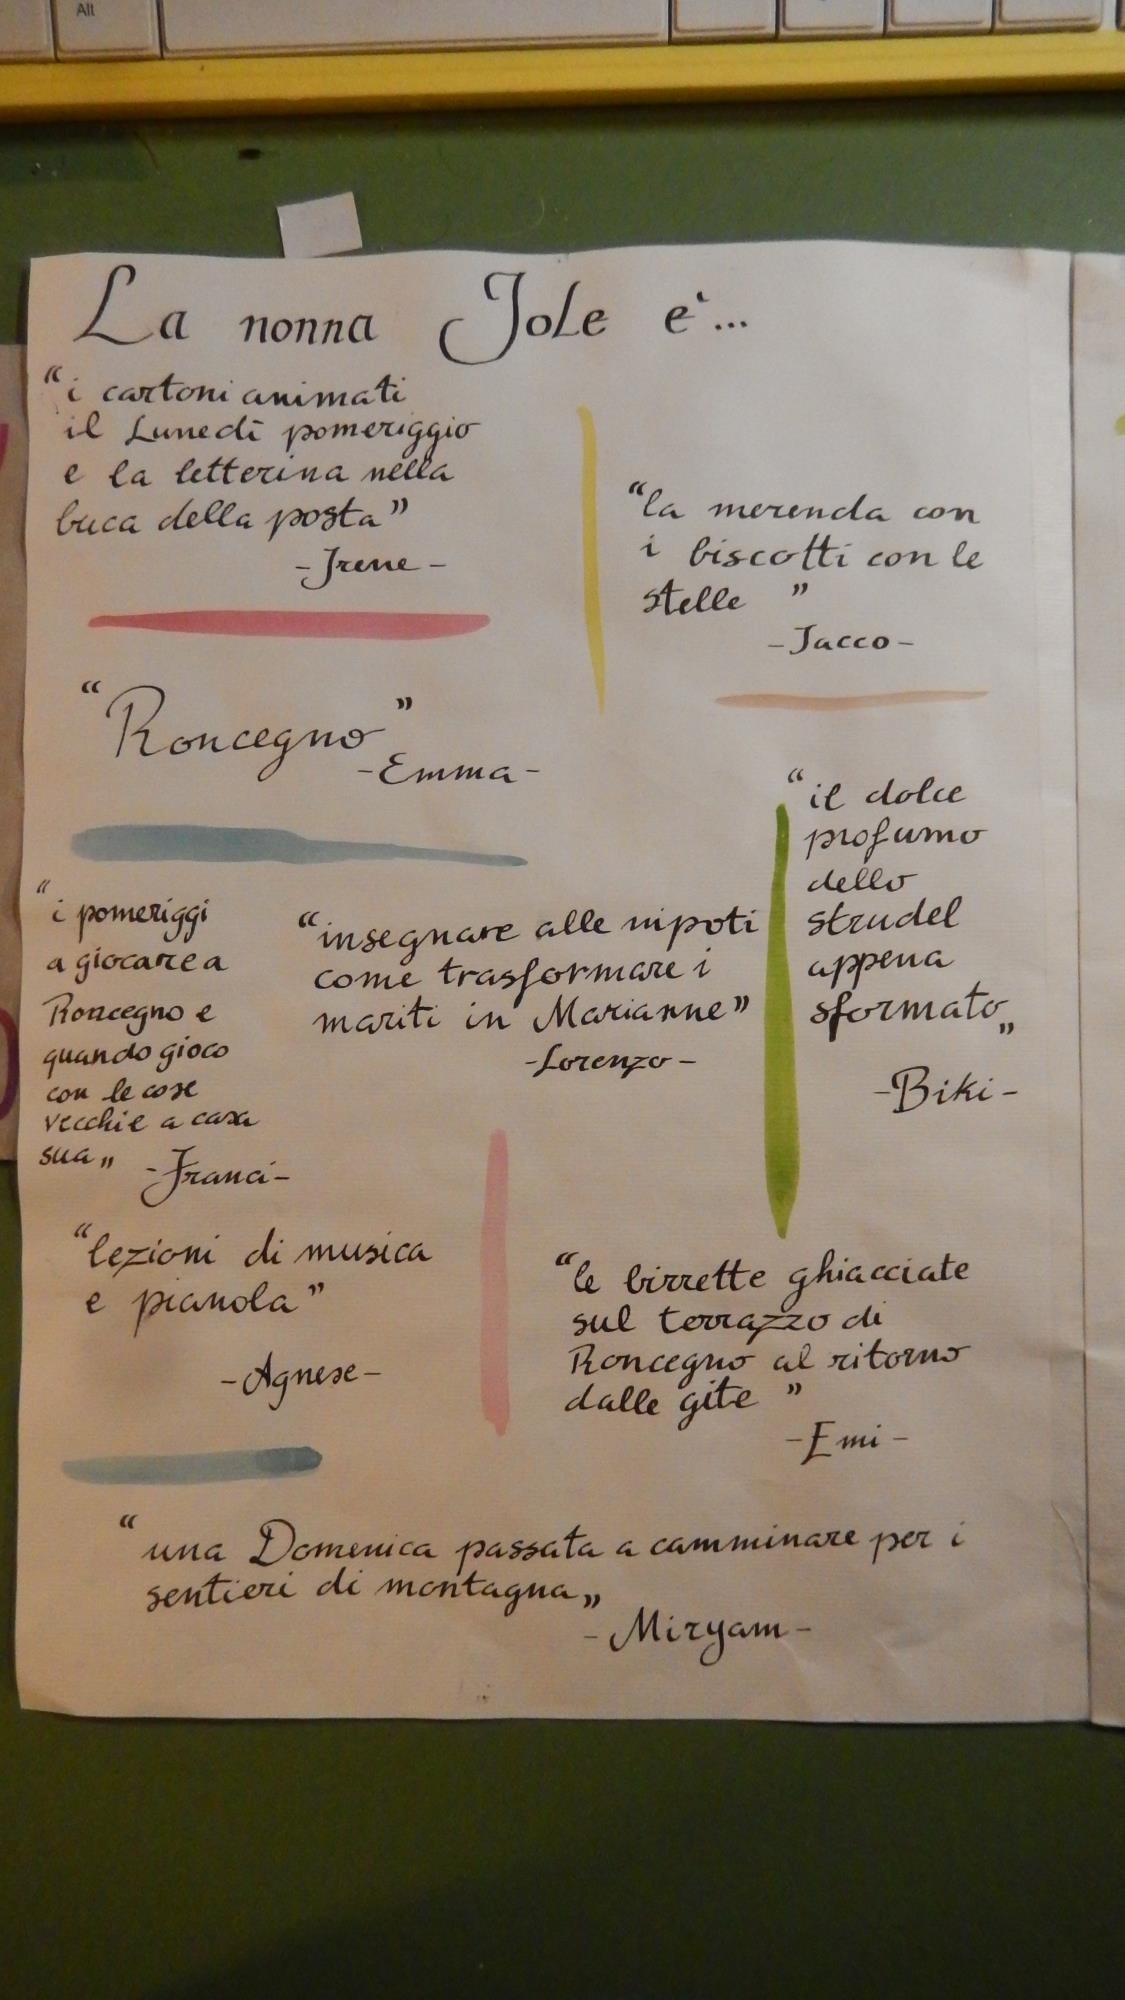 Alt
La nonna Jole è...
"i cartoni animati
il Lunedì pomeriggio
e la letterina nella
buca della posta"
-Irene-
"la merenda con
i biscotti con le
stelle "
-Jacco-
"Roncegno"
-Emma-
"il dolce
profumo
dello
strudel
appena
sformato"
-Biki-
"i pomeriggi
a giocare a
Roncegno e
quando gioco
con le cose
vecchie a casa
sua"
-Franci-
"insegnare alle nipoti
come trasformare i
mariti in Marianne"
-Lorenzo-
"lezioni di musica
e pianola"
-Agnese-
"le birrette ghiacciate
sul terrazzo di
Roncegno al ritorno
dalle gite "
-Emi-
"una Domenica passata a camminare per i
sentieri di montagna"
-Miryam-